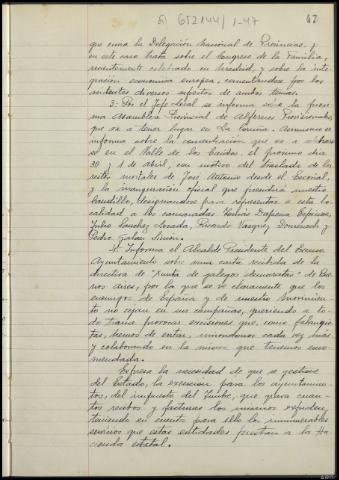 GI GSZ144/1-47
67
que envia la Delegación Nacional de Provincias, y
en este caso trata sobre el Congreso de la Familia,
recientemente celebrado en Madrid, y sobre la inte-
gración económica europea, comentándose por los
asistentes diversos aspectos de ambos temas.
3: Por el Jefe Local se informa sobre la próxi-
ma Asamblea Provincial de Alféreces Provisionales,
que va a tener lugar en La Coruña. Asimismo se
informa sobre la concentración que va a celebrar-
se en el Valle de los Caidos el próximo día
30 y 1 de Abril, con motivo del traslado de los
restos mortales de José Antonio desde el Escorial,
y la inauguración oficial que presidirá nuestro
Caudillo, designándose para representar a esta lo-
calidad a los camaradas Dapena Espinosa,
Julio Sanchez Losada, Ricardo Vazquez Domenech y
Pedro Galan Simon.
4: Informa el Alcalde Presidente del Excmo
Ayuntamiento sobre una carta recibida de la
directiva de "Xunta de galegos demócratas" de Bue-
nos aires, por la que se ve claramente que los
enemigos de España y de nuestro Movimiento
no cejan en sus campañas, queriendo a to-
da trama provocar escisiones que, como falangis-
tas, hemos de evitar, uniéndonos cada vez más
y colaborando en la misión que tenemos enco-
mendada.
Expresa la necesidad de que se gestione
del Estado, la exención para los ayuntamien-
tos, del impuesto del Timbre, que grava cuan-
tos recibos y facturas los mismos expiden,
teniendo en cuenta para ello los innumerables
servicios que estas entidades prestan a la Ha-
cienda estatal.